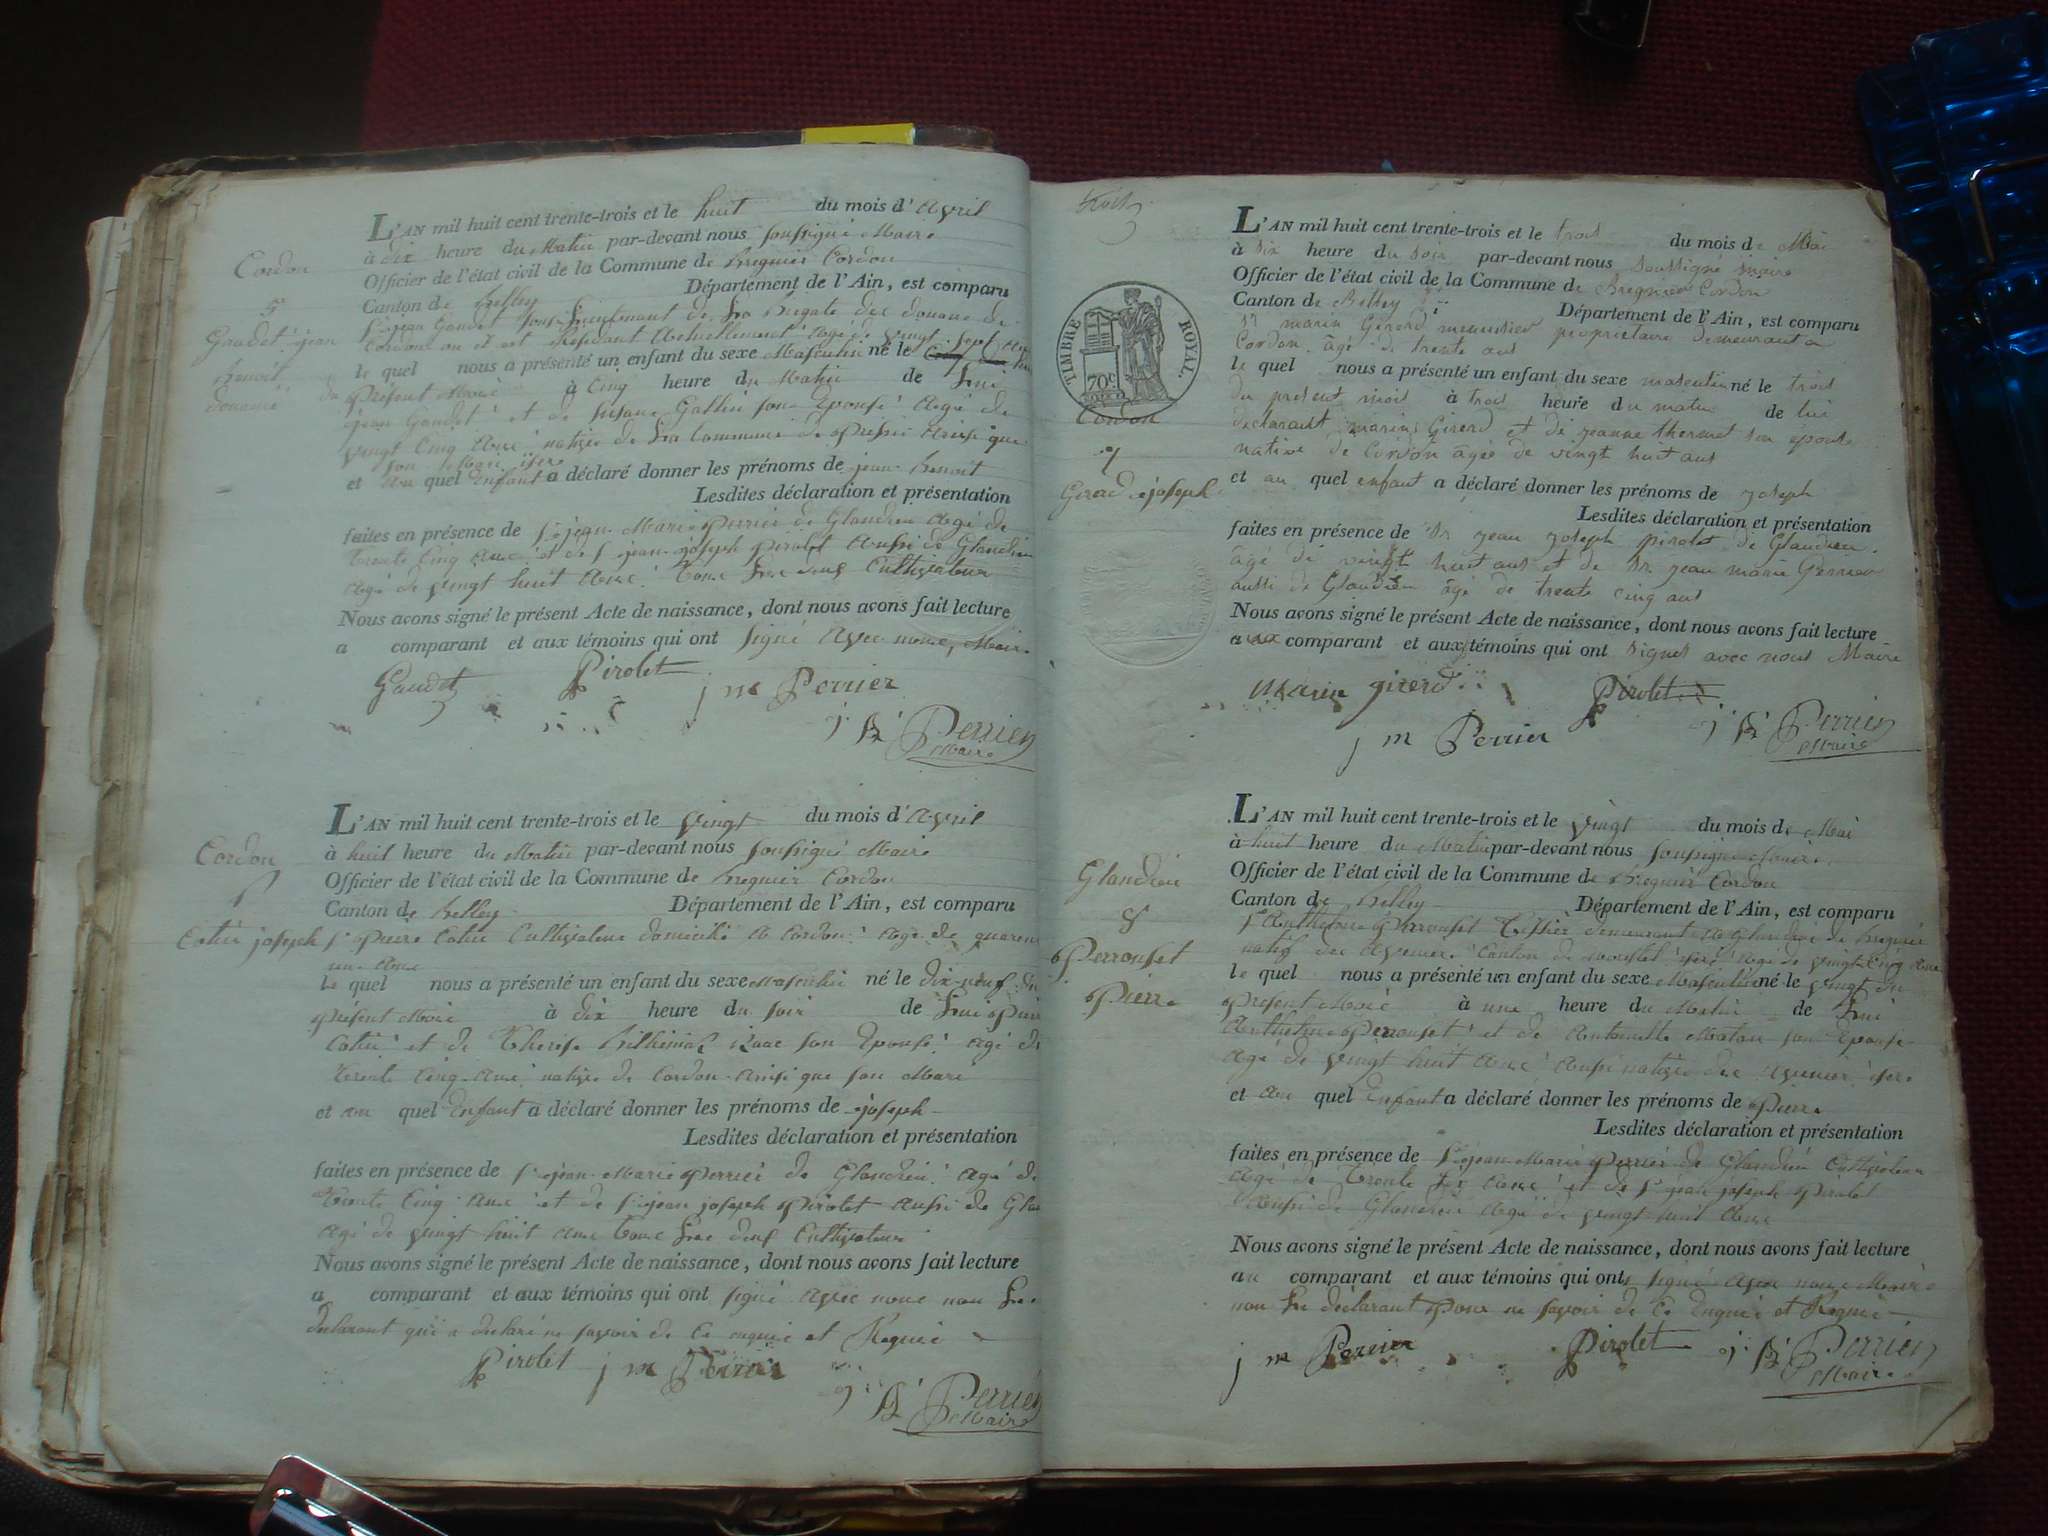 L'AN mil huit cent trente-trois et le huit du mois d'avril
à dix heure du Matin par-devant nous soussigné Maire
Officier de l'état civil de la Commune de Bregnier Cordon
Canton de Belley Département de l'Ain, est comparu
Cordon
5
Gaudet jean
benoit
sr jean Gaudet sous Lieutenant de La Brigade des douane de
Cordon ou il est Résident Actuellement agé de vingt sept ans
le quel nous a présenté un enfant du sexe Masculin né le
du présent Mois à Cinq heure du Matin de Lui
jean Gaudet et de Susane Gallin son Epouse Agé de
vingt Cinq Ans native de La Commune de ainsi que
son Mari isere
et au quel Enfant a déclaré donner les prénoms de jean benoit
Lesdites déclaration et présentation
faites en présence de Sr jean Marie Perrier de Glandieu Agé de
trente Cinq Ans et de Sr jean joseph Pirolet Aussi de Glandieu
Agé de vingt huit Ans tous Les deux Cultivateur
Nous avons signé le présent Acte de naissance, dont nous avons fait lecture
a comparant et aux témoins qui ont signé Avec nous, Maire
Gaudet Pirolet j m Perrier
j. Bt Perrier
Maire
L'AN mil huit cent trente-trois et le vingt du mois d'avril
à huit heure du Matin par-devant nous soussigné Maire
Officier de l'état civil de la Commune de Bregnier Cordon
Canton de Belley Département de l'Ain, est comparu
Cordon
6
Cotin joseph
sr Pierre Cotin Cultivateur domicilié A Cordon Agé de quarente
un Ans
le quel nous a présenté un enfant du sexe Masculin né le dix-neuf du
présent Mois à dix heure du soir de Lui Pierre
Cotin et de Therese son Epouse Agé de
trente Cinq Ans native de Cordon Ainsi que son Mari
et au quel Enfant a déclaré donner les prénoms de joseph
Lesdites déclaration et présentation
faites en présence de Sr jean Marie Perrier de Glandieu Agé de
trente Cinq Ans et de Sr jean joseph Pirolet Aussi de Gla
Agé de vingt huit Ans tous Les deux Cultivateur
Nous avons signé le présent Acte de naissance, dont nous avons fait lecture
a comparant et aux témoins qui ont signé Avec nous non Le
déclarant qui a déclaré ne savoir de Ce enquis et Requis
Pirolet j m Perrier
j. Bt Perrier
Maire
L'AN mil huit cent trente-trois et le trois du mois de Mai
à six heure du soir par-devant nous soussigné maire
Officier de l'état civil de la Commune de Bregnier Cordon
Canton de Belley Département de l'Ain, est comparu
TIMBRE ROYAL.
70c
Cordon
7
Girerd joseph
sr marin Girerd meunier propriétaire demeurant a
Cordon âgé de trente ans
le quel nous a présenté un enfant du sexe masculin né le trois
du present mois à trois heure du matin de lui
déclarant marin Girerd et de jeanne thermet son épouse
native de Cordon âgée de vingt huit ans
et au quel enfant a déclaré donner les prénoms de joseph
Lesdites déclaration et présentation
faites en présence de Sr jean joseph pirolet de Glandieu
âgé de vingt huit ans et de Sr jean marie Perrier
aussi de Glandieu âgé de trente cinq ans
Nous avons signé le présent Acte de naissance, dont nous avons fait lecture
aux comparant et aux témoins qui ont signés avec nous Maire
Marin girerd Pirolet
j m Perrier j. Bt Perrier
Maire
L'AN mil huit cent trente-trois et le vingt du mois de Mai
à huit heure du Matin par-devant nous soussigné Maire
Officier de l'état civil de la Commune de Bregnier Cordon
Canton de Belley Département de l'Ain, est comparu
Glandieu
8
Perrousset
Pierre
sr Anthelme Perrousset Tessier demeurant A Glandieu de Bregnier
natif des Avenieres Canton de Morestel isere Agé de vingt Cinq Ans
le quel nous a présenté un enfant du sexe Masculin né le vingt du
présent Mois à une heure du Matin de Lui
Anthelme Perrousset et de Antoinette son Epouse
Agé de vingt huit Ans Aussi native des Avenieres isere
et au quel Enfant a déclaré donner les prénoms de Pierre
Lesdites déclaration et présentation
faites en présence de Sr jean Marie Perrier de Glandieu Cultivateur
Agé de trente six Ans et de Sr jean joseph Pirolet
Aussi de Glandieu Agé de vingt huit Ans
Nous avons signé le présent Acte de naissance, dont nous avons fait lecture
au comparant et aux témoins qui ont signé Avec nous Maire
non Le déclarant Pour ne savoir de Ce Enquis et Requis
j m Perrier Pirolet j. Bt Perrier
Maire